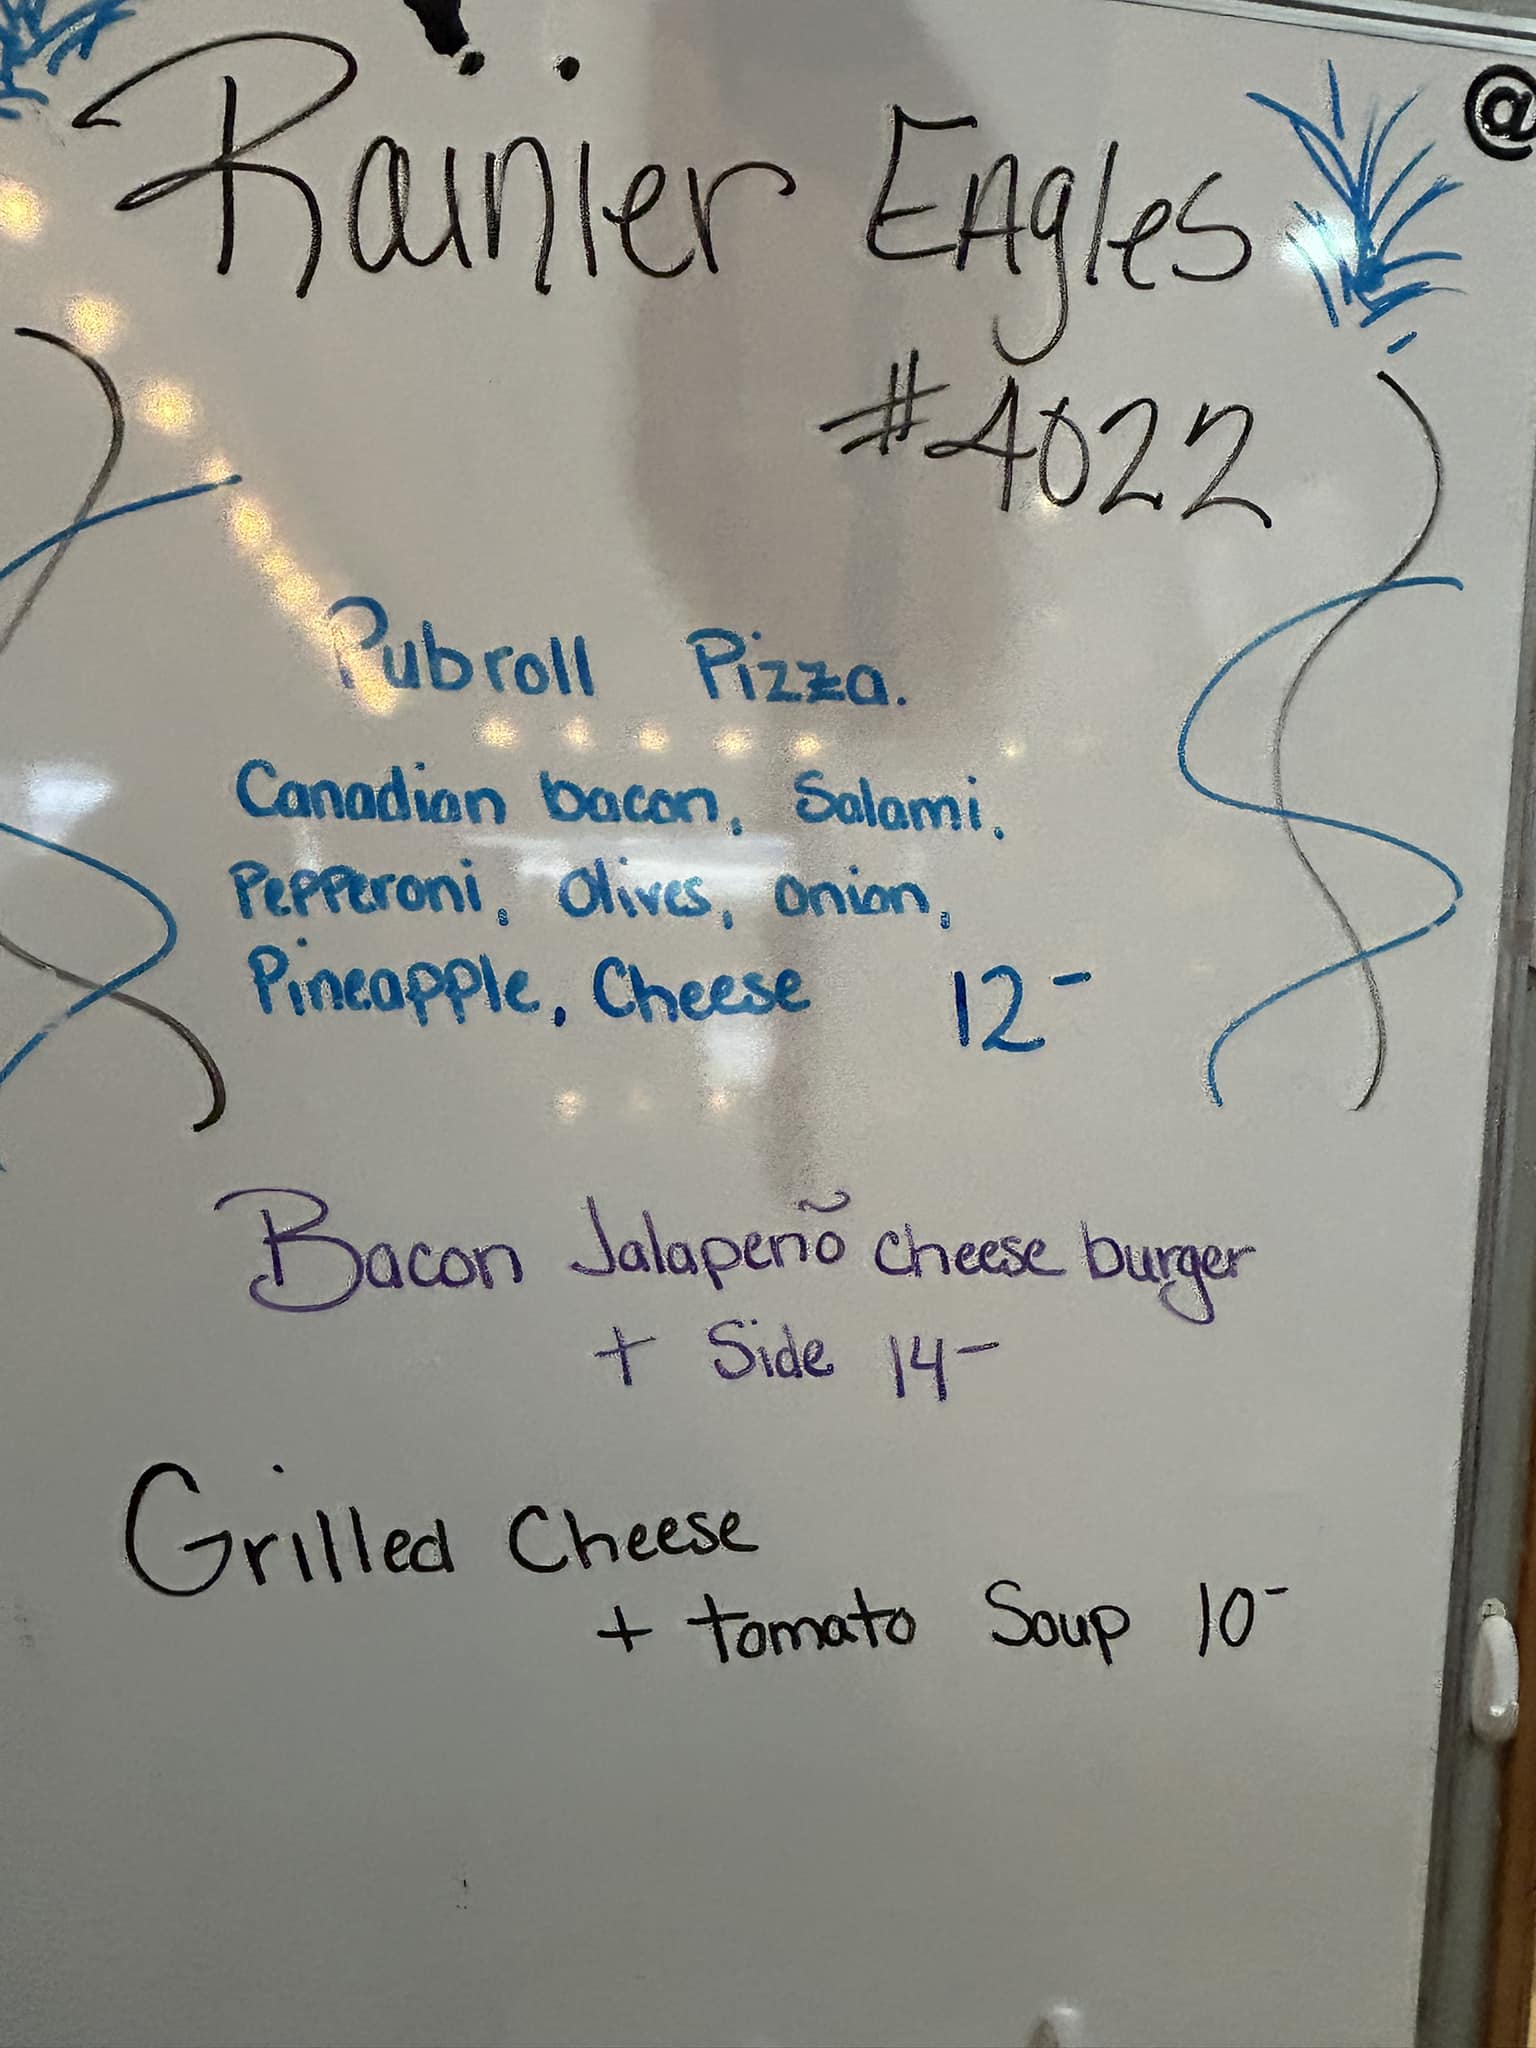 @
Rainier Eagles
#4022
Pubroll Pizza.
Canadian bacon, Salami,
Pepperoni, Olives, onion,
Pineapple, Cheese 12-
Bacon Jalapenõ cheese burger
+ Side 14-
Grilled Cheese
+ tomato Soup 10-